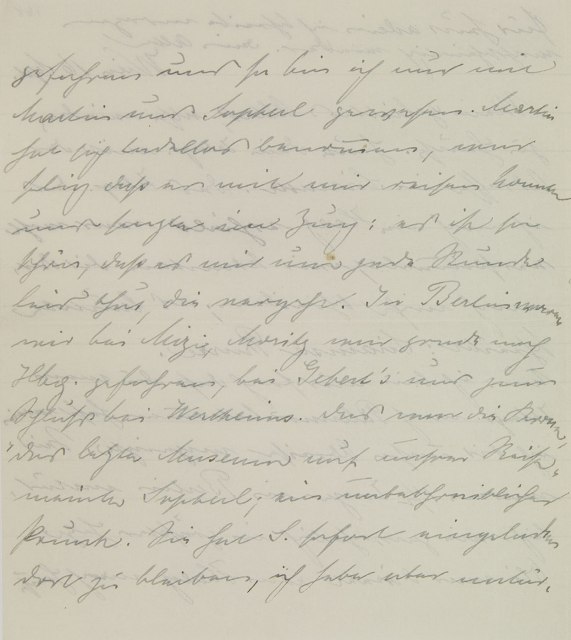 gefahren und so bin ich nur mit
Martin und Sopherl gewesen. Martin
hat sich tadellos benommen, war
selig daß er mit mir reisen konnte
und sagte im Zug: es ist so
schön, daß es mir um jede Stunde
leid thut, die vergeht. In Berlin waren
wir bei Mizi, Moritz war grade nach
Hbg. gefahren, bei Gebert's und zum
Schluß bei Wertheims. Das war die Krone,
"das letzte Museum auf unsrer Reise"
meinte Sopherl; ein unbeschreiblicher
Prunk. Sie hat S. sofort eingeladen
dort zu bleiben, ich habe aber natür-